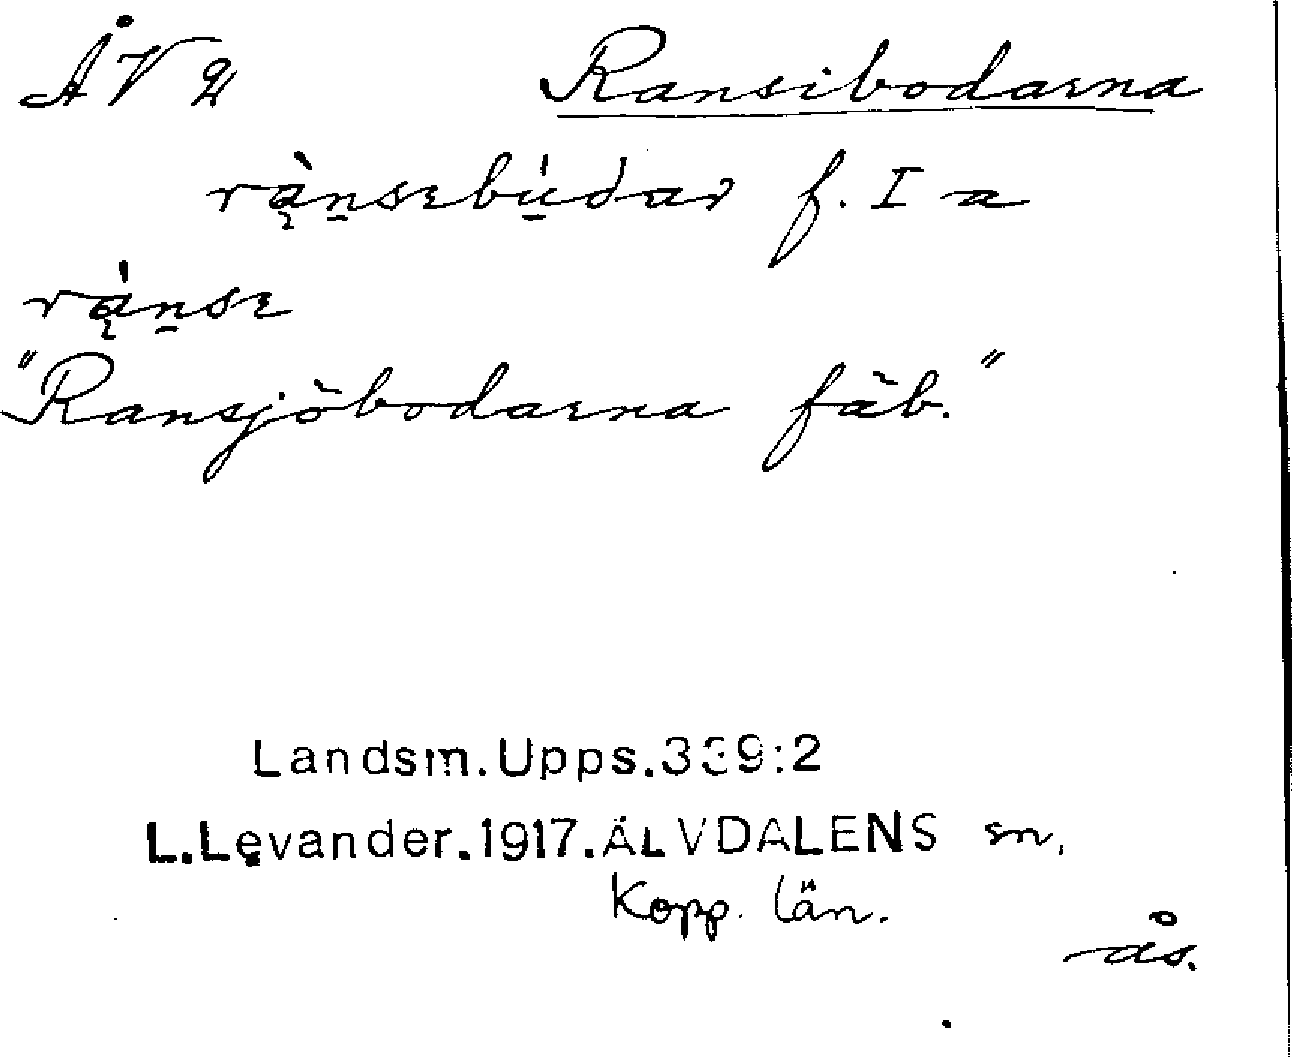 ÅV 2 Ransibodarna
rą̀n̠sebù̠dar f. I a
rą̀n̠se
"Ransjöbodarna fäb."
Landsm.Upps.339:2
L.Levander.1917.ÄLVDALENS sn.
Kopp. län.
ås.